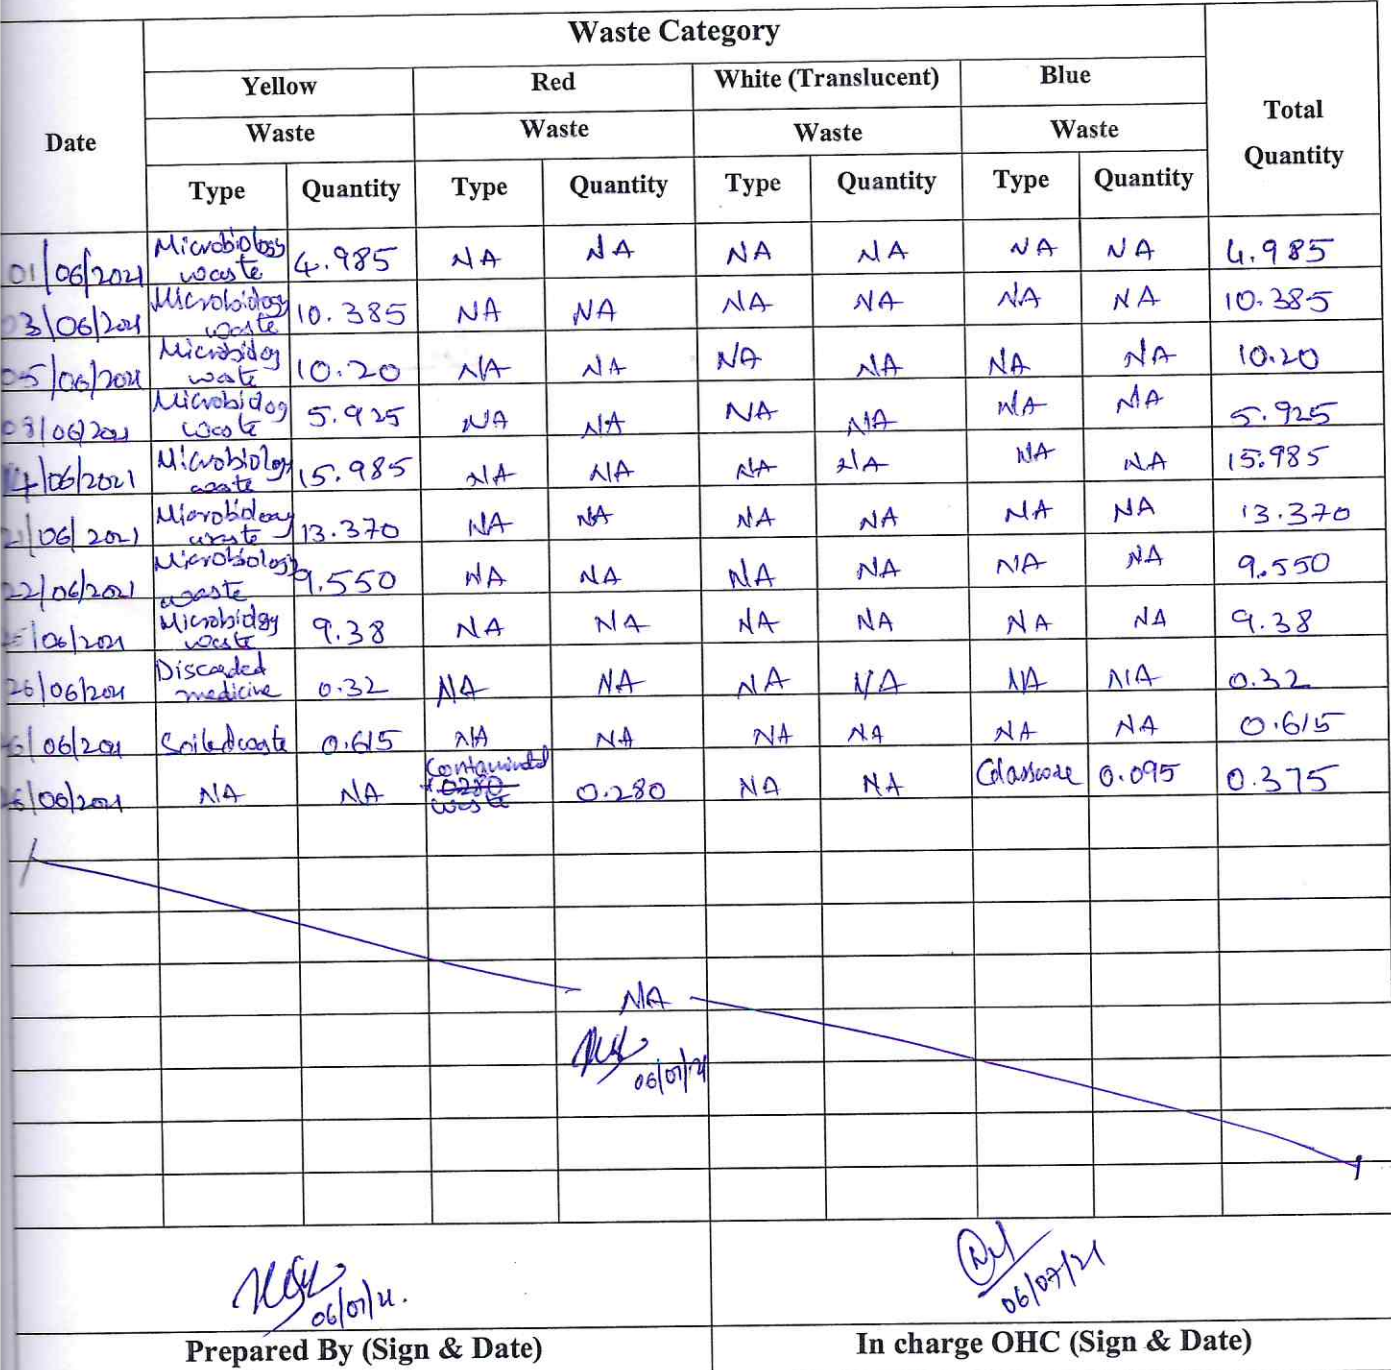 Waste Category
Date Yellow Red White (Translucent) Blue Total Quantity
Waste Waste Waste Waste
Type Quantity Type Quantity Type Quantity Type Quantity
01/06/2021 Microbiology waste 4.985 NA NA NA NA NA NA 4.985
03/06/2021 Microbiology waste 10.385 NA NA NA NA NA NA 10.385
05/06/2021 Microbiology waste 10.20 NA NA NA NA NA NA 10.20
/06/2021 Microbiology waste 5.925 NA NA NA NA NA NA 5.925
14/06/2021 Microbiology waste 15.985 NA NA NA NA NA NA 15.985
21/06/2021 Microbiology waste 13.370 NA NA NA NA NA NA 13.370
22/06/2021 Microbiology waste 9.550 NA NA NA NA NA NA 9.550
25/06/2021 Microbiology waste 9.38 NA NA NA NA NA NA 9.38
26/06/2021 Discarded medicine 0.32 NA NA NA NA NA NA 0.32
26/06/2021 Soiled waste 0.615 NA NA NA NA NA NA 0.615
26/06/2021 NA NA Contaminated waste 0.280 NA NA Glassware 0.095 0.375
NA
06/07/21
06/07/21.
06/07/21
Prepared By (Sign & Date) In charge OHC (Sign & Date)